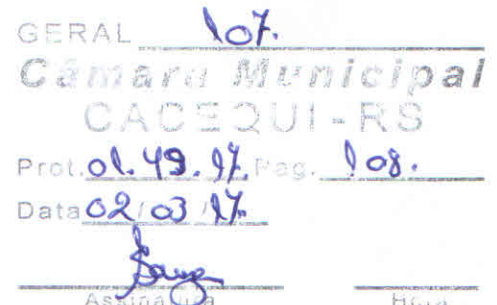 GERAL 107.
Câmara Municipal
CACEQUI-RS
Prot. 01.49.17. Pag. 108.
Data 02/03/17.
Assinatura Hora